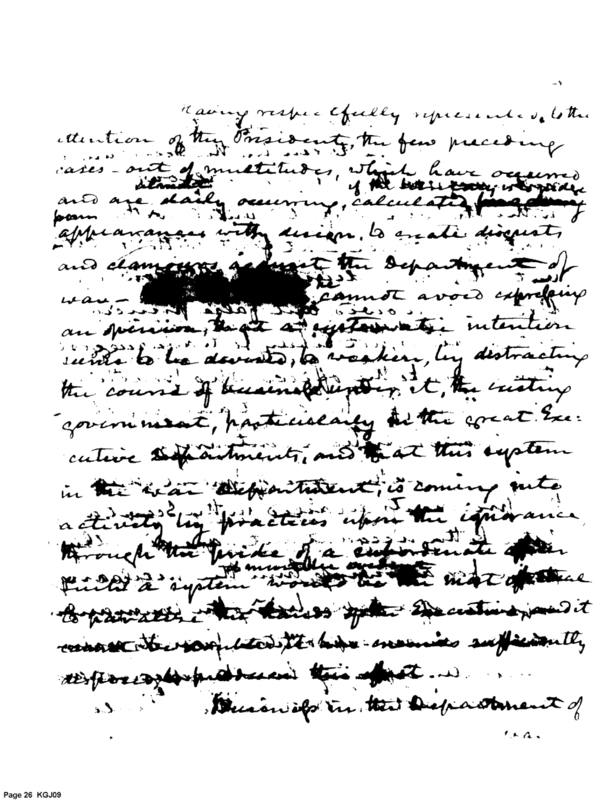 Having respectfully represented, to the
attention of the President, the few preceding
cases - out of multitudes, which have occurred
and are daily occurring, calculated
from
appearances with design, to create disgusts
and clamours against the Department of
war - he cannot avoid expressing
an opinion, that a systematic intention
seems to be devised, to weaken, by distracting
the course of business under it, the existing
government, particularly in the great Exe:
cutive Departments, and that this system
in the war Department, is coming into
activity by practices upon the ignorance
through the pride of a subordinate
Such a system would be the most
to paralise the hands of the Executive, and it
cannot be doubted it has enemies sufficiently
disposed to produce this effect.
Business in the Department of
Page 26 KGJ09